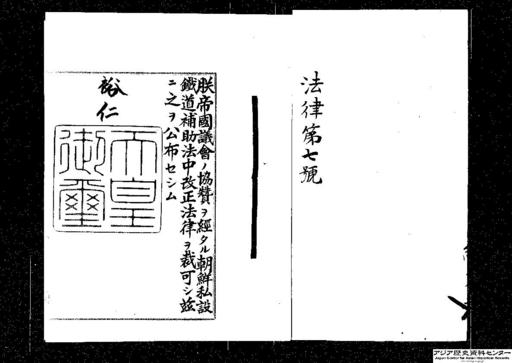 法律第七號
朕帝國議會ノ協贊ヲ經タル朝鮮私設
鐵道補助法中改正法律ヲ裁可シ茲
ニ之ヲ公布セシム
裕仁
天皇
御璽
アジア歴史資料センター
Japan Center for Asian Historical Records